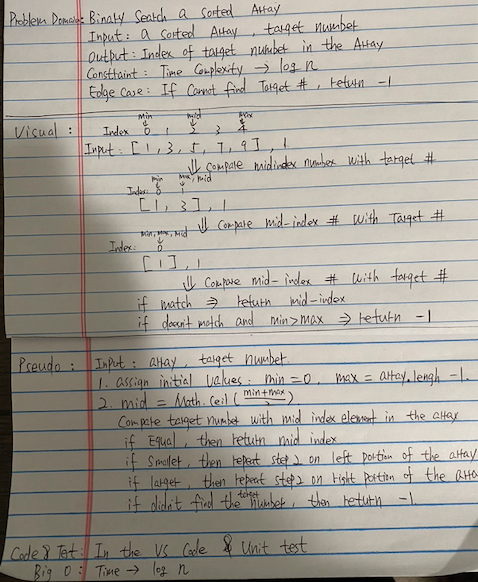 Problem Domain: Binary Search a Sorted Array
Input: a Sorted Array, target number
Output: Index of target number in the Array
Constraint: Time Complexity → log n
Edge Case: If Cannot find Target #, return -1
Visual:
min mid max
Index 0 1 2 3 4
Input: [1, 3, 5, 7, 9], 1
⇓ Compare mid index number with target #
min max, mid
Index: 0 1
[1, 3], 1
⇓ Compare mid-index # with Target #
min, max, mid
Index: 0
[1], 1
⇓ Compare mid-index # with target #
if match ⇒ return mid-index
if doesn't match and min>max ⇒ return -1
Pseudo: Input: array, target number.
1. assign initial values: min=0. max = array.lengh -1.
2. mid = Math.Ceil(min+max/2)
Compare target number with mid index element in the array
if Equal, then return mid index
if smaller, then repeat step 2 on left portion of the array
if larger, then repeat step 2 on right portion of the arra
if didn't find the target number, then return -1
Code & Test: In the VS Code & Unit test
Big O: Time → log n